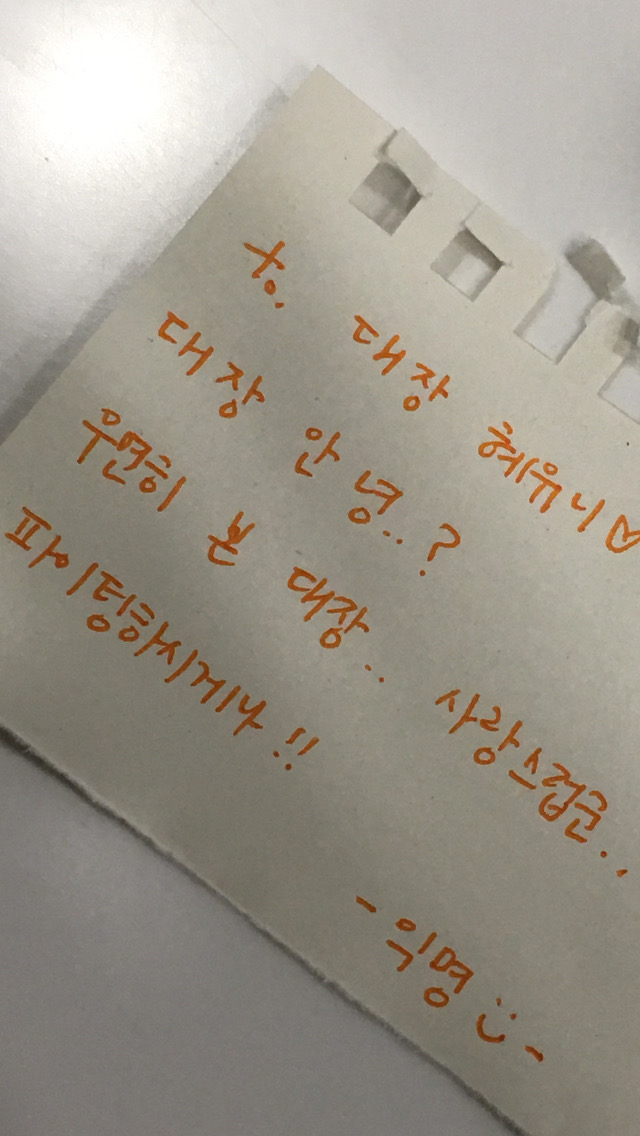 to. 대장 혜위니♡
대장 안녕..?
우연히 본 대장.. 사랑스럽군..
파이팅하시게나!!
- 익명 :) -